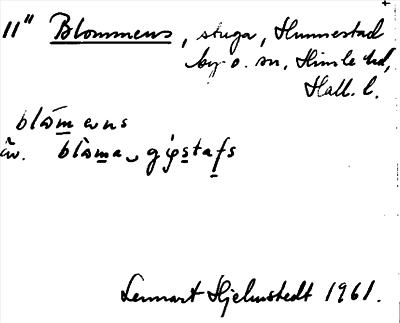 11" Blommens, stuga, Hunnestad
by o. sn, Himle hd,
Hall. l.
blòmens
äv. blòma gɸstafs
Lennart Hjelmstedt 1961.